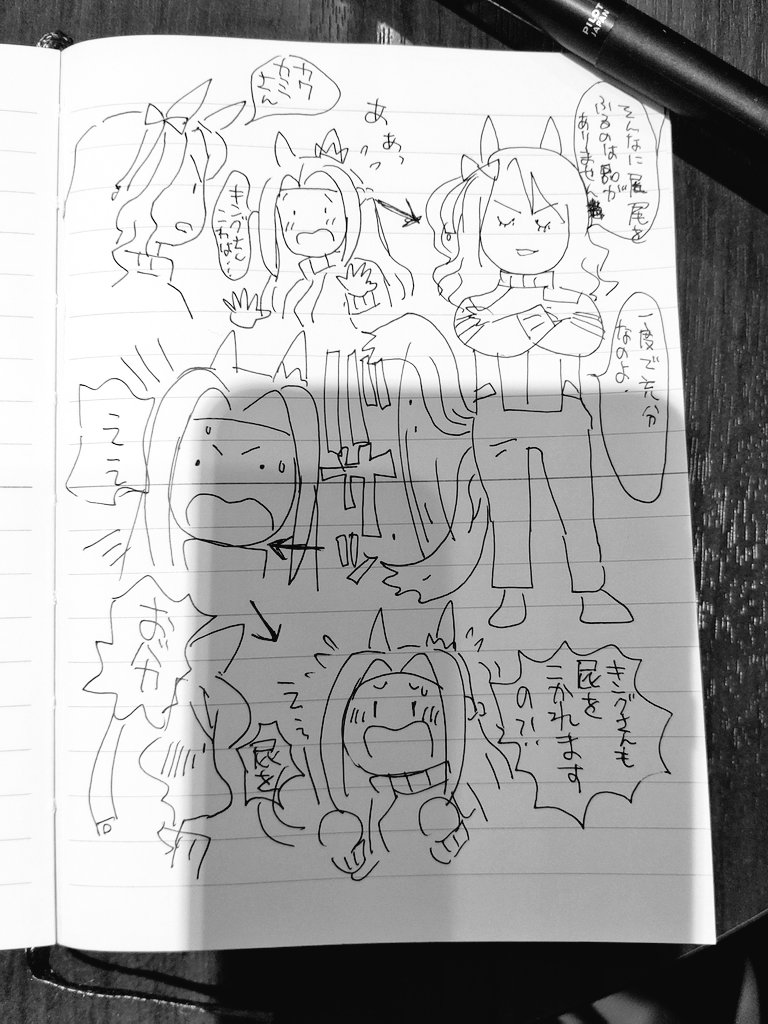 カワ
カミ
さん
あ
あぁっ
キングさん
こわぱ…
そんなに尾を
ふるのは品が
ありません
一度で充分
なのよ。
ええ
おバカ
ええっ
尻を
キングさんも
尻を
こかれます
の?!
PILOT
JAPAN